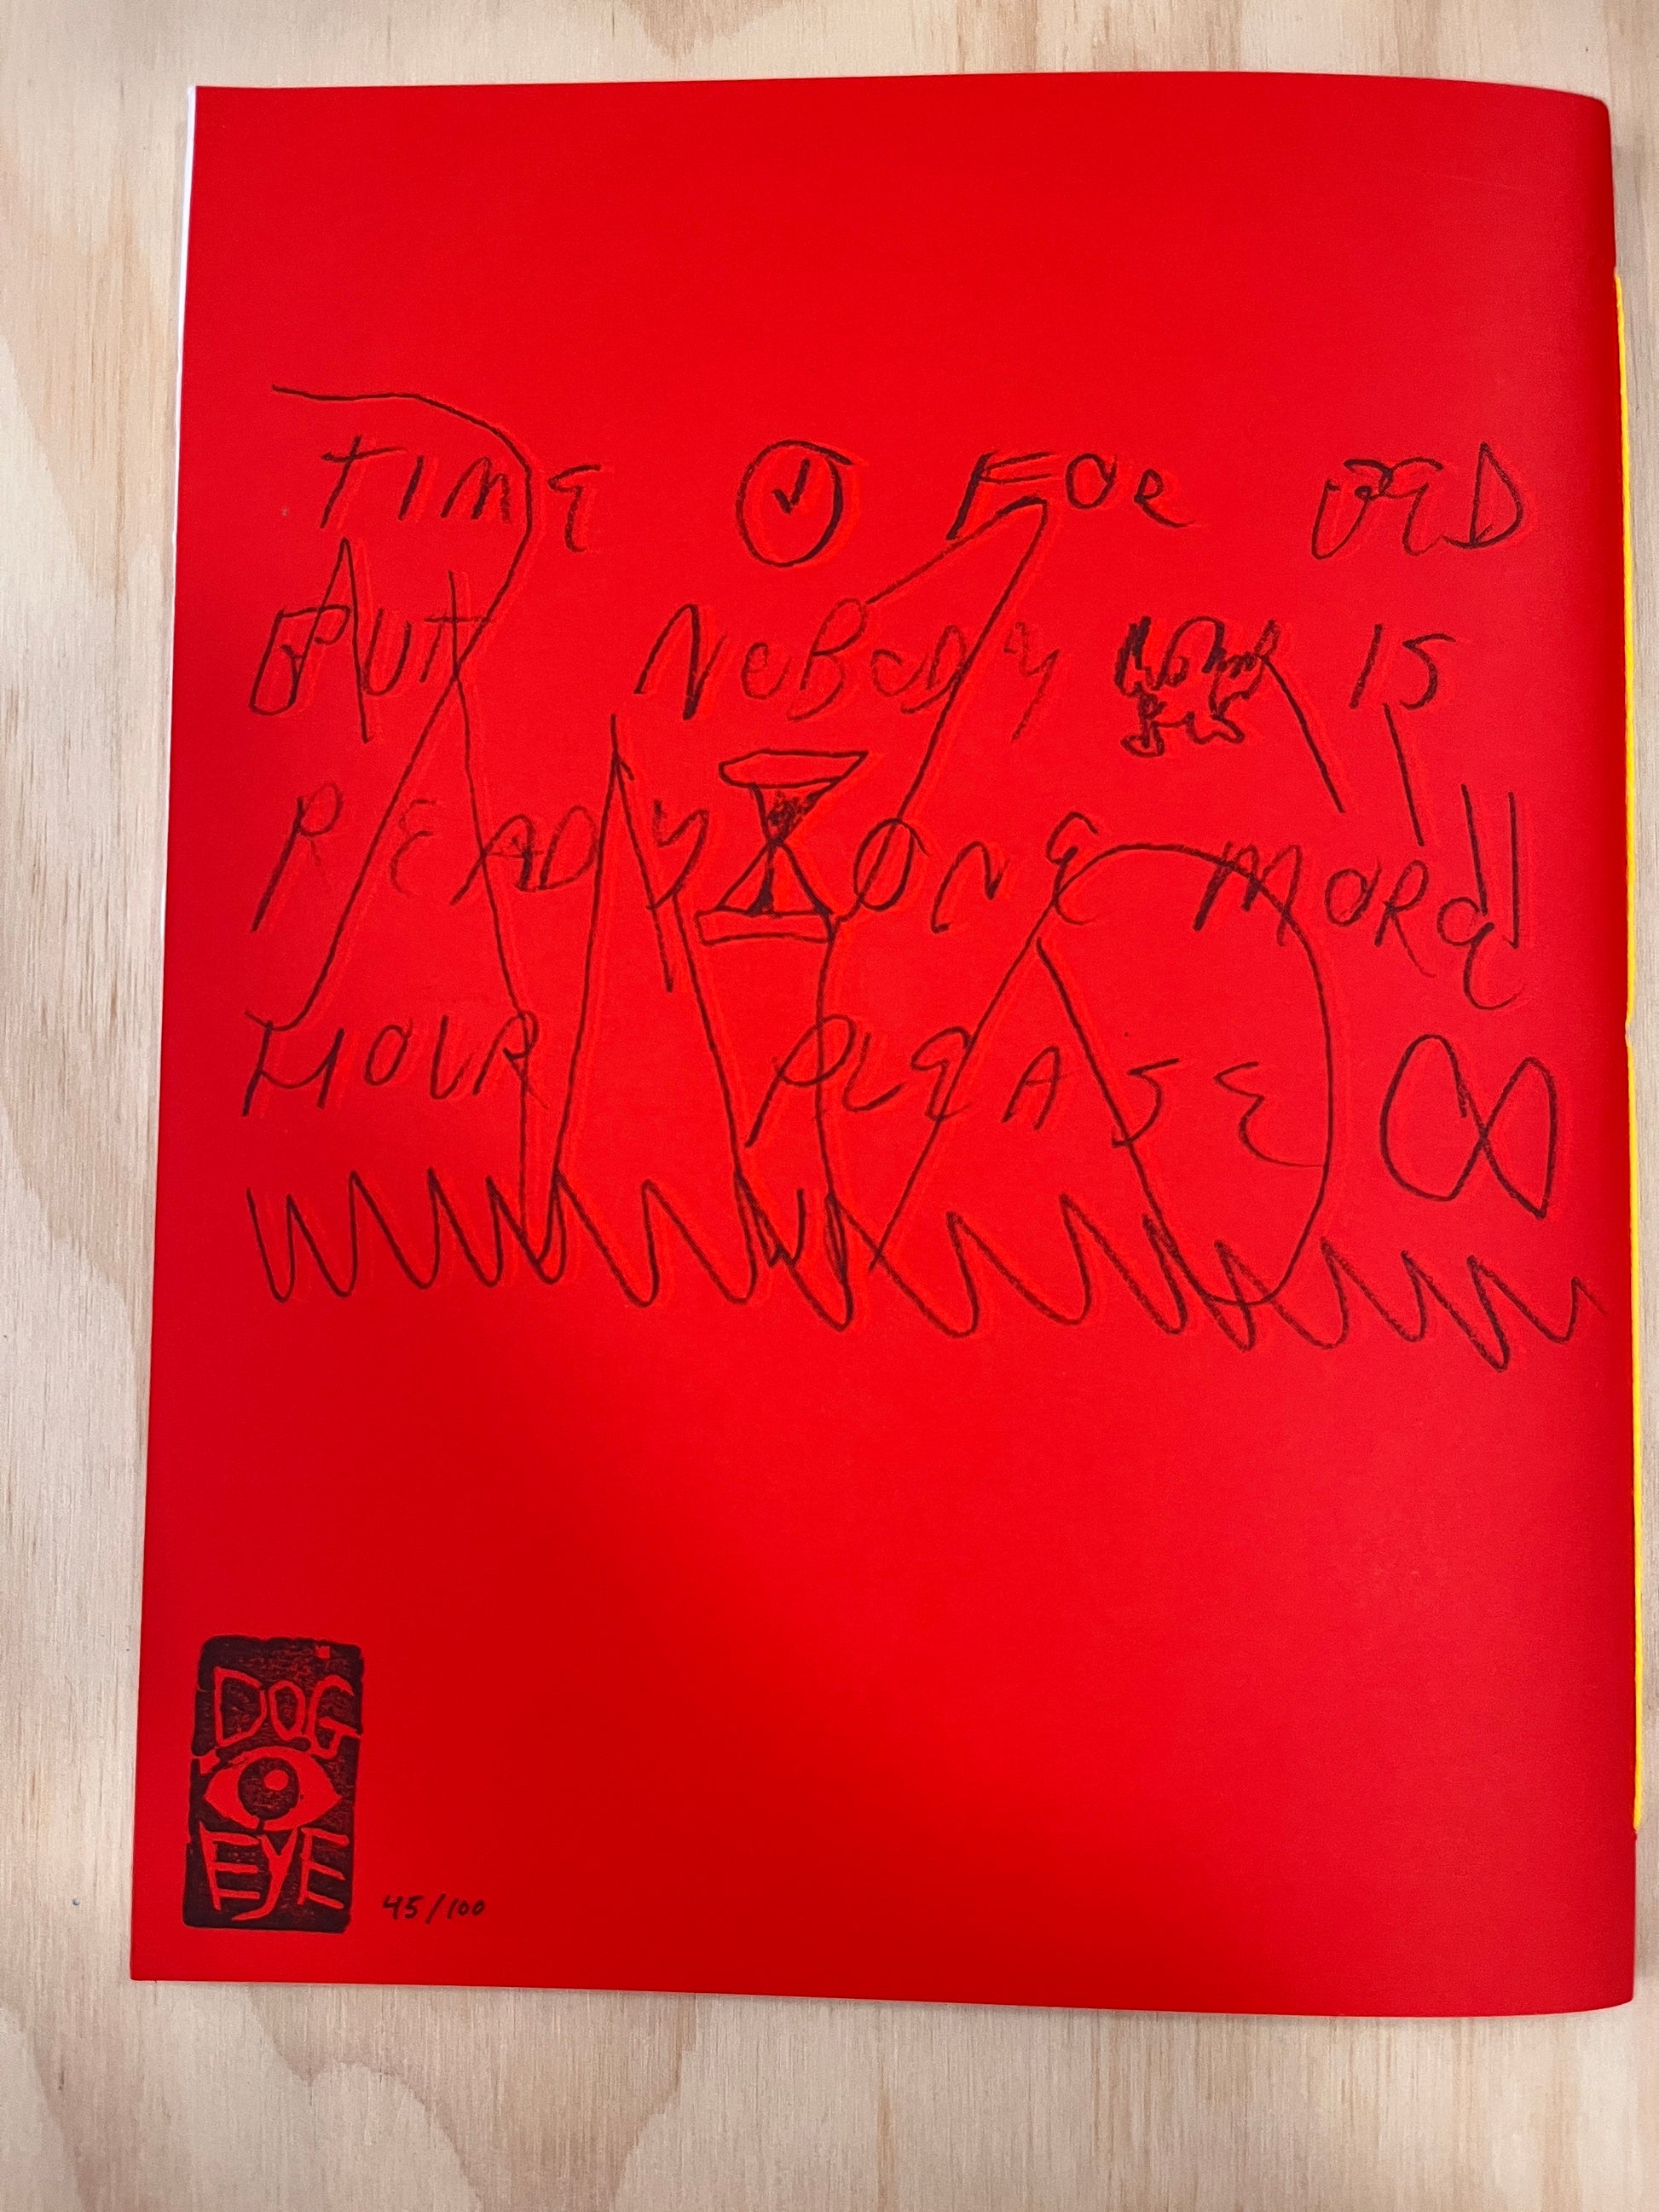 TIME FOR BED
BUT NOBODY IS
READY ONE MORE
HOUR PLEASE ∞
DOG
EYE
45/100